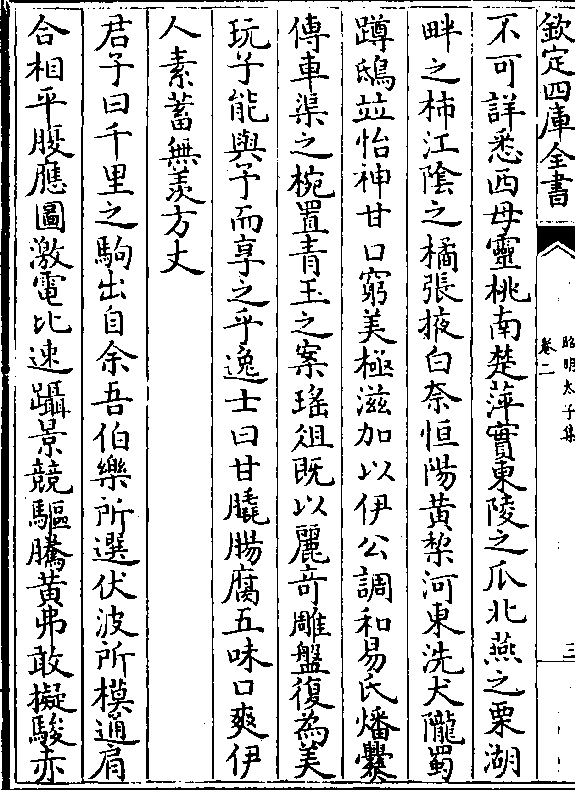 欽定四庫全書
昭明太子集
卷二
三
不可詳悉西母靈桃南楚萍實東陵之瓜北燕之栗湖
畔之柿江陰之橘張掖白奈恒陽黄棃河東洗犬隴蜀
蹲鴟竝怡神甘口窮美極滋加以伊公調和易氏燔爨
傳車渠之椀置青玉之案瑤俎既以麗奇雕盤復為美
玩子能與予而享之乎逸士曰甘脆腸腐五味口爽伊
人素蓄無羨方丈
君子曰千里之駒出自余吾伯樂所選伏波所模通肩
合相平腹應圖激電比速躡景競驅騰黄弗敢擬駿赤